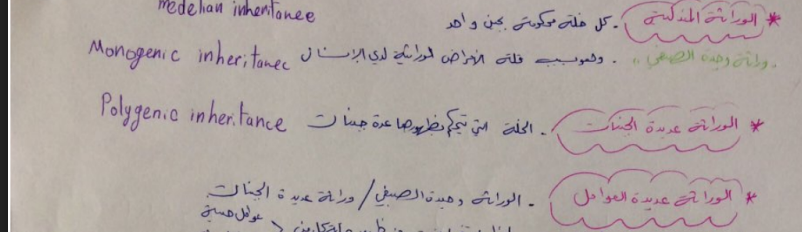 medelian inheritanee
* الوراثة المندلية . كل خلة محكومة بجين واحد
"وراثة وحيدة الصبغي" . وهو سبب قلة الأمراض الوراثية لدى الإنسان Monogenic inheritance
* الوراثة عديدة الجينات . الخلة التي تتحكم بظهورها عدة جينات Polygenic inheritance
* الوراثة عديدة العوامل . الوراثة وحيدة الصبغي / وراثة عديدة الجينات
عوامل